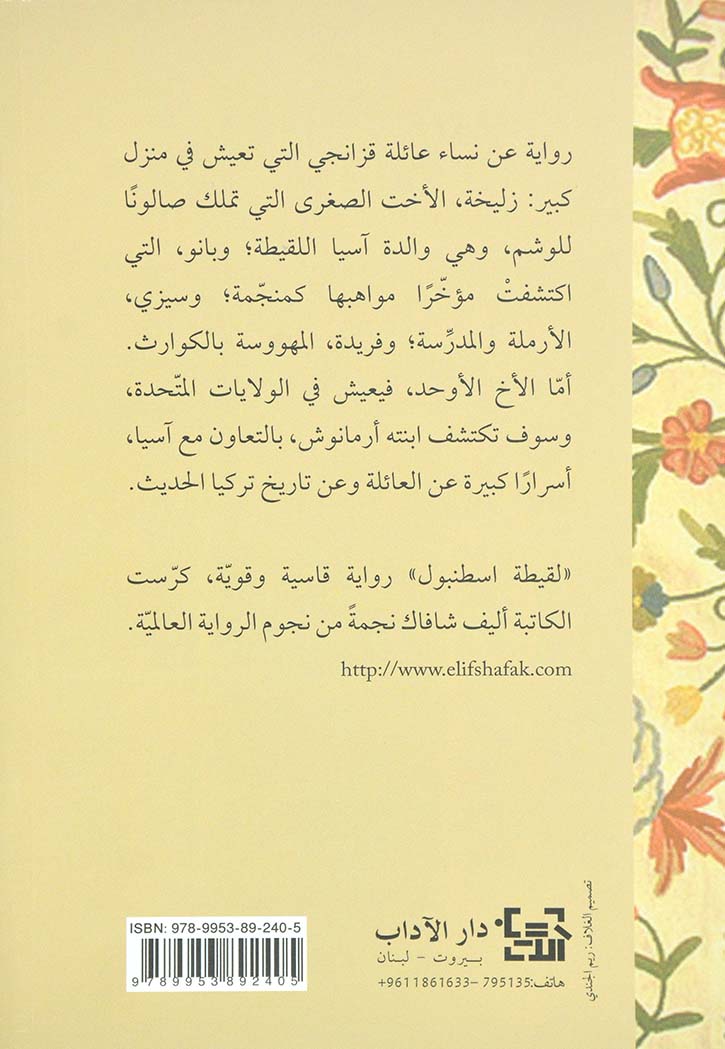 رواية عن نساء عائلة قزانجي التي تعيش في منزل
كبير: زليخة، الأخت الصغرى التي تملك صالونًا
للوشم، وهي والدة آسيا اللقيطة؛ وبانو، التي
اكتشفتْ مؤخّرًا مواهبها كمنجّمة؛ وسيزي،
الأرملة والمدرِّسة؛ وفريدة، المهووسة بالكوارث.
أمّا الأخ الأوحد، فيعيش في الولايات المتّحدة،
وسوف تكتشف ابنته أرمانوش، بالتعاون مع آسيا،
أسرارًا كبيرة عن العائلة وعن تاريخ تركيا الحديث.
«لقيطة اسطنبول» رواية قاسية وقويّة، كرّست
الكاتبة أليف شافاك نجمةً من نجوم الرواية العالميّة.
http://www.elifshafak.com
تصميم الغلاف: ريم الجندي
دار الآداب
بيروت - لبنان
هاتف: 795135 - 9611861633+
ISBN: 978-9953-89-240-5
9 789953 892405